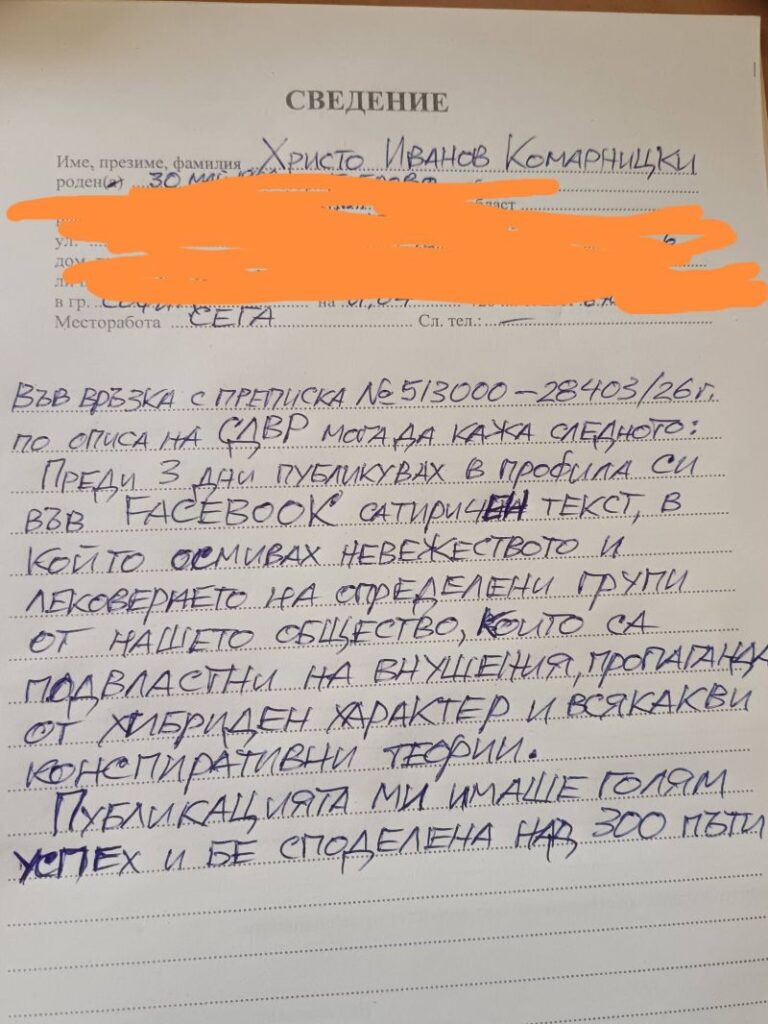 СВЕДЕНИЕ
Име, презиме, фамилия Христо Иванов Комарницки
роден(а) 30 МАЙ
област
ул.
дом.
в гр. СОФИЯ на 01,04
Месторабота СЕГА Сл. тел.: —
ВЪВ ВРЪЗКА С ПРЕПИСКА № 513000-28403/26г.
ПО ОПИСА НА СДВР МОГА ДА КАЖА СЛЕДНОТО:
ПРЕДИ 3 ДНИ ПУБЛИКУВАХ В ПРОФИЛА СИ
ВЪВ FACEBOOK САТИРИЧЕН ТЕКСТ, В
КОЙТО ОСМИВАХ НЕВЕЖЕСТВОТО И
ЛЕКОВЕРАЕТО НА ОПРЕДЕЛЕНИ ГРУПИ
ОТ НАШЕТО ОБЩЕСТВО, КОИТО СА
ПОДВЛАСТНИ НА ВНУШЕНИЯ, ПРОПАГАНДА
ОТ ХИБРИДЕН ХАРАКТЕР И ВСЯКАКВИ
КОНСПИРАТИВНИ ТЕОРИИ.
ПУБЛИКАЦИЯТА МИ ИМАШЕ ГОЛЯМ
УСПЕХ И БЕ СПОДЕЛЕНА НАД 300 ПЪТИ